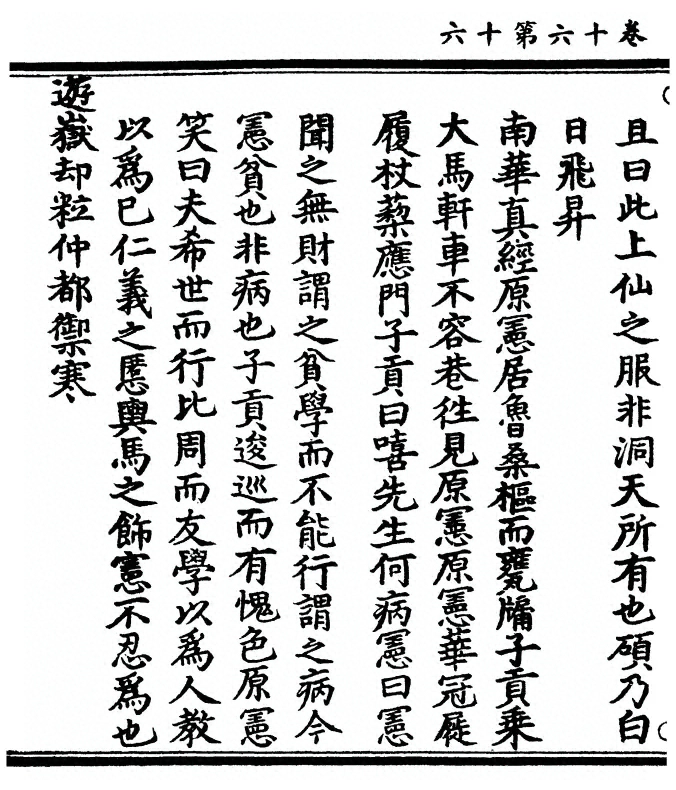 卷十六第十六
且曰此上仙之服非洞天所有也碩乃白
日飛昇
南華真經原憲居魯桑樞而甕牖子貢乗
大馬軒車不容巷徃見原憲原憲華冠屣
履杖藜應門子貢曰嘻先生何病憲曰憲
聞之無財謂之貧學而不能行謂之病今
憲貧也非病也子貢逡巡而有愧色原憲
笑曰夫希世而行比周而友學以爲人教
以爲已仁義之慝輿馬之飾憲不忍爲也
遊嶽却粒仲都禦寒